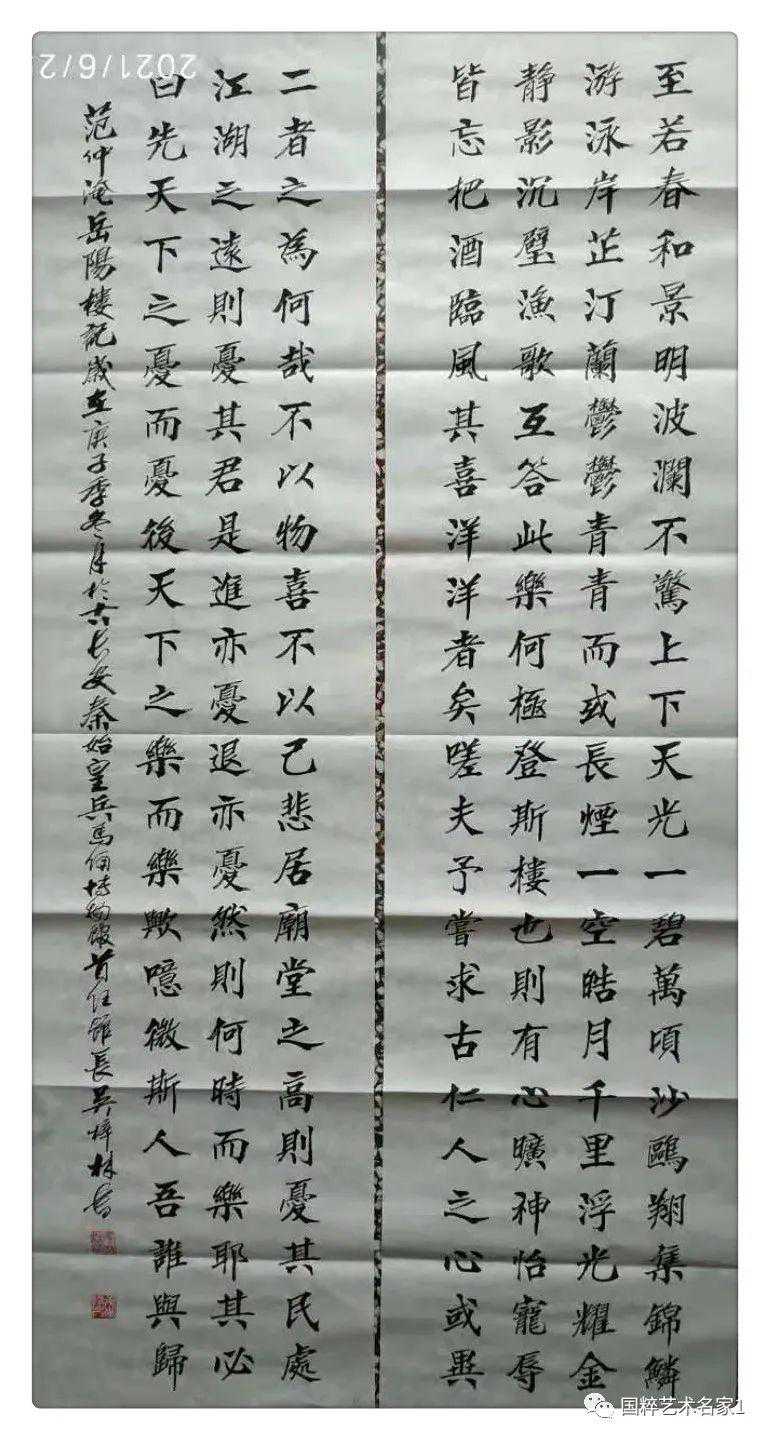 至若春和景明波瀾不驚上下天光一碧萬頃沙鷗翔集錦鱗
游泳岸芷汀蘭鬱鬱青青而或長煙一空皓月千里浮光耀金
静影沉璧漁歌互答此樂何極登斯樓也則有心曠神怡寵辱
皆忘把酒臨風其喜洋洋者矣嗟夫予嘗求古仁人之心或異
二者之為何哉不以物喜不以己悲居廟堂之高則憂其民處
江湖之遠則憂其君是進亦憂退亦憂然則何時而樂耶其必
曰先天下之憂而憂後天下之樂而樂歟噫微斯人吾誰與歸
范仲淹岳陽樓記歲在庚子季冬月於古長安秦始皇兵馬俑博物館首任館長吴梓林書
2021/6/2
国粹艺术名家1